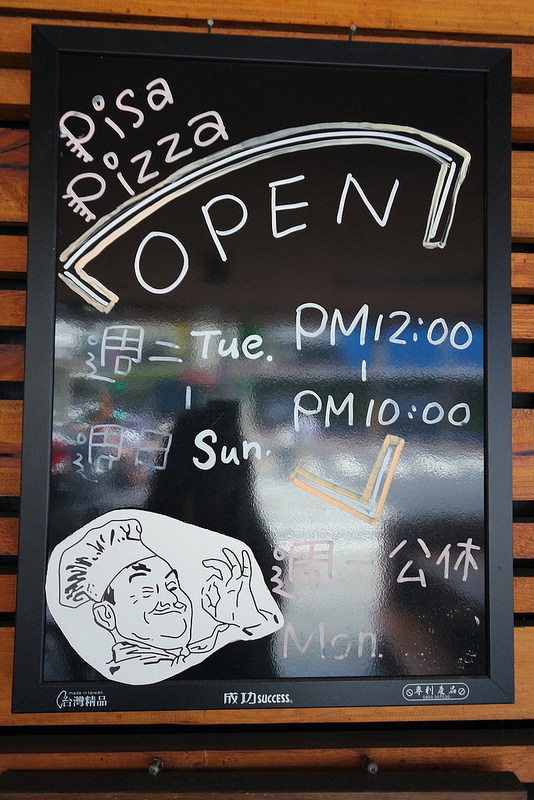 Pisa
Pizza
OPEN
週二 Tue. PM12:00
|
PM10:00
週日 Sun.
週一公休
Mon.
made in taiwan
台灣精品
成功 SUCCESS®
專利產品